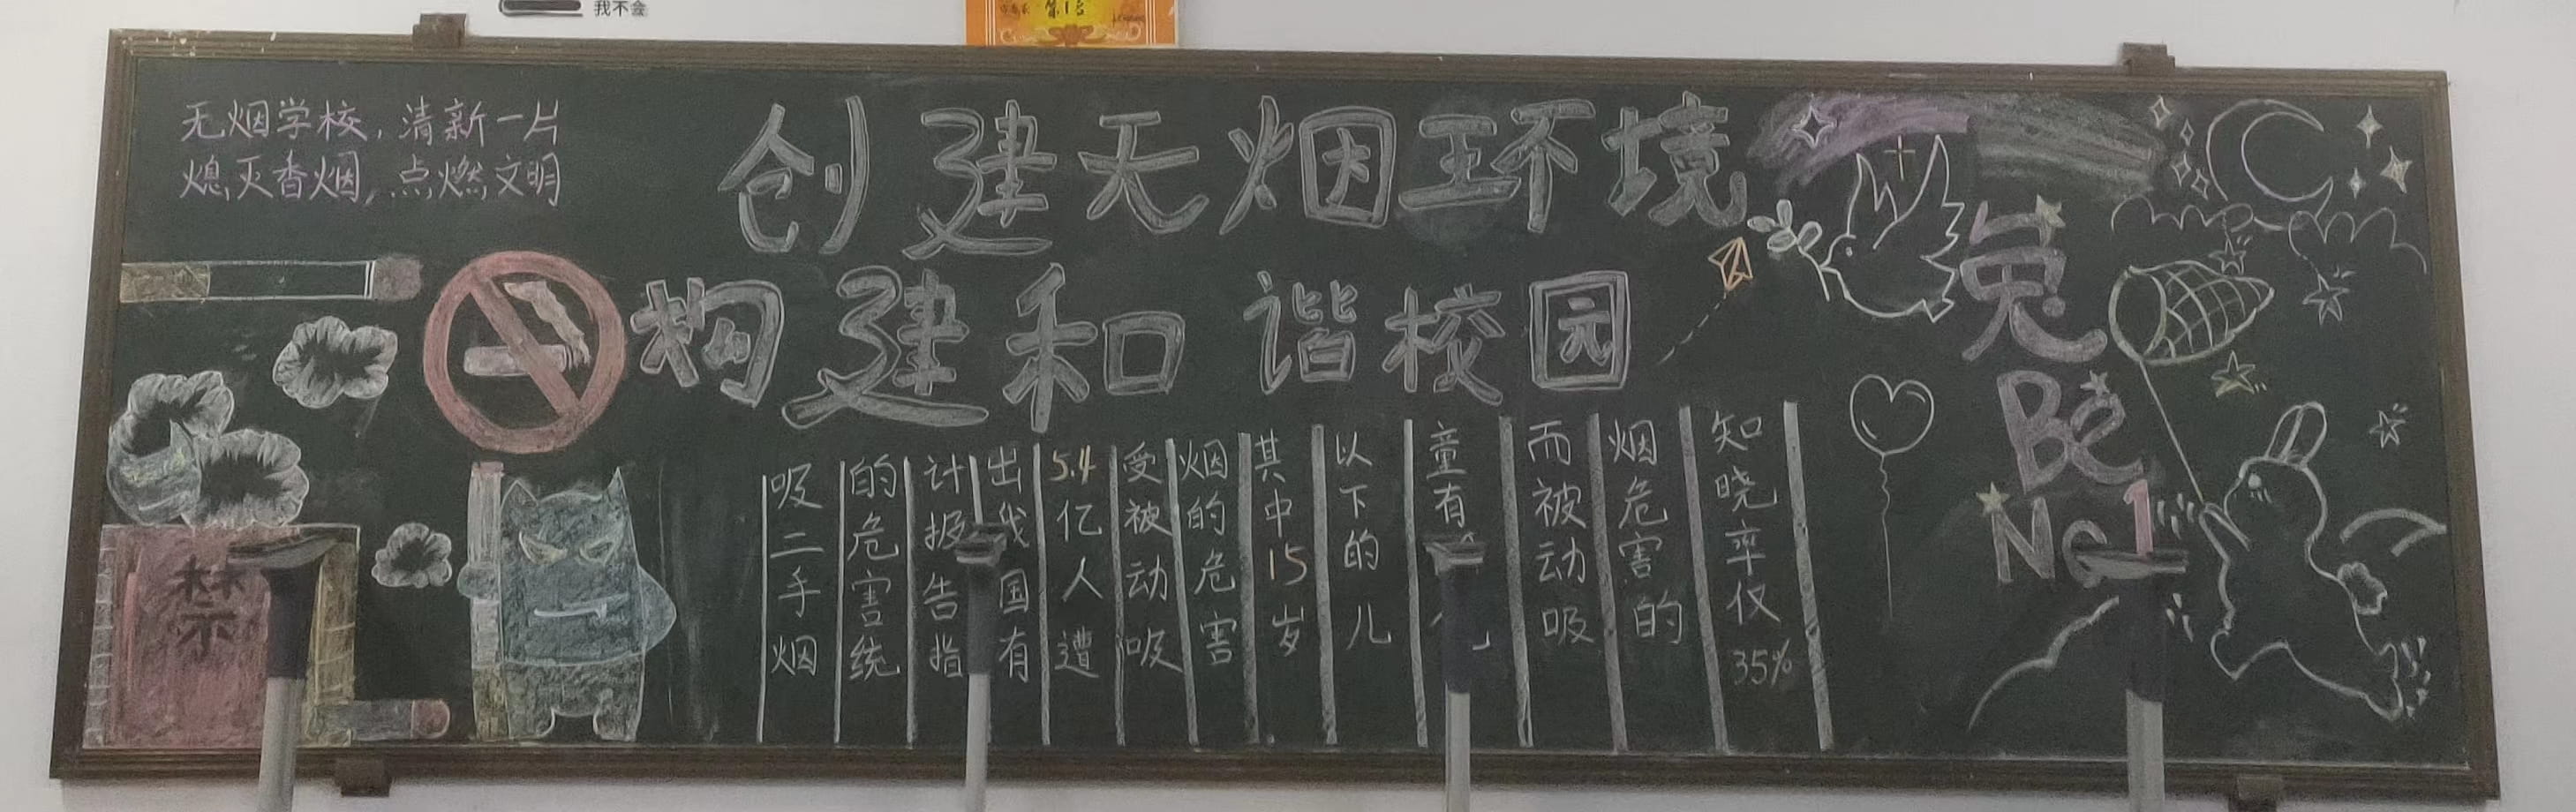 我不会
无烟学校，清新一片
熄灭香烟，点燃文明
创建无烟环境
构建和谐校园
禁
吸二手烟
的危害统
计报告指
出我国有
5.4亿人遭
受被动吸
烟的危害
其中15岁
以下的儿
童有
而被动吸
烟危害的
知晓率仅
35%
兔
Be
No1